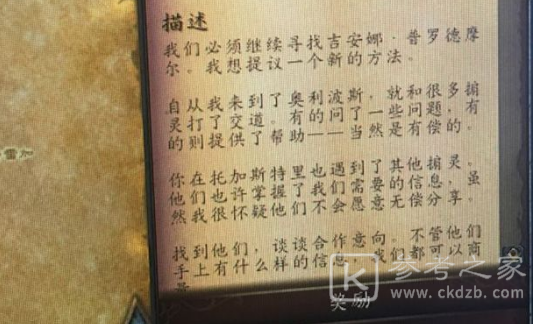 描述
我们必须继续寻找吉安娜·普罗德摩
尔。我想提议一个新的方法。
自从我来到了奥利波斯，就和很多掮
灵打了交道。有的问了一些问题，有
的则提供了帮助——当然是有偿的。
你在托加斯特里也遇到了其他掮灵。
他们也许掌握了我们需要的信息，虽
然我很怀疑他们不会愿意无偿分享。
找到他们，谈谈合作意向。不管他们
手上有什么样的信息，我们都可以商
量
奖励
K 参考之家
www.ckdzb.com